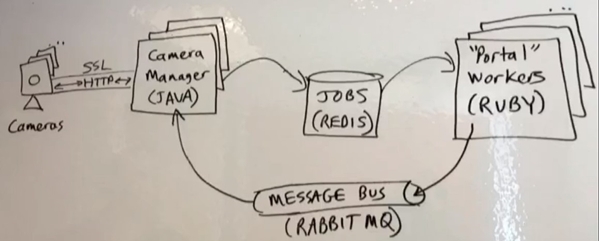 SSL
HTTP
Cameras
Camera
Manager
(JAVA)
JOBS
(REDIS)
"Portal"
Workers
(RUBY)
MESSAGE BUS
(RABBIT MQ)